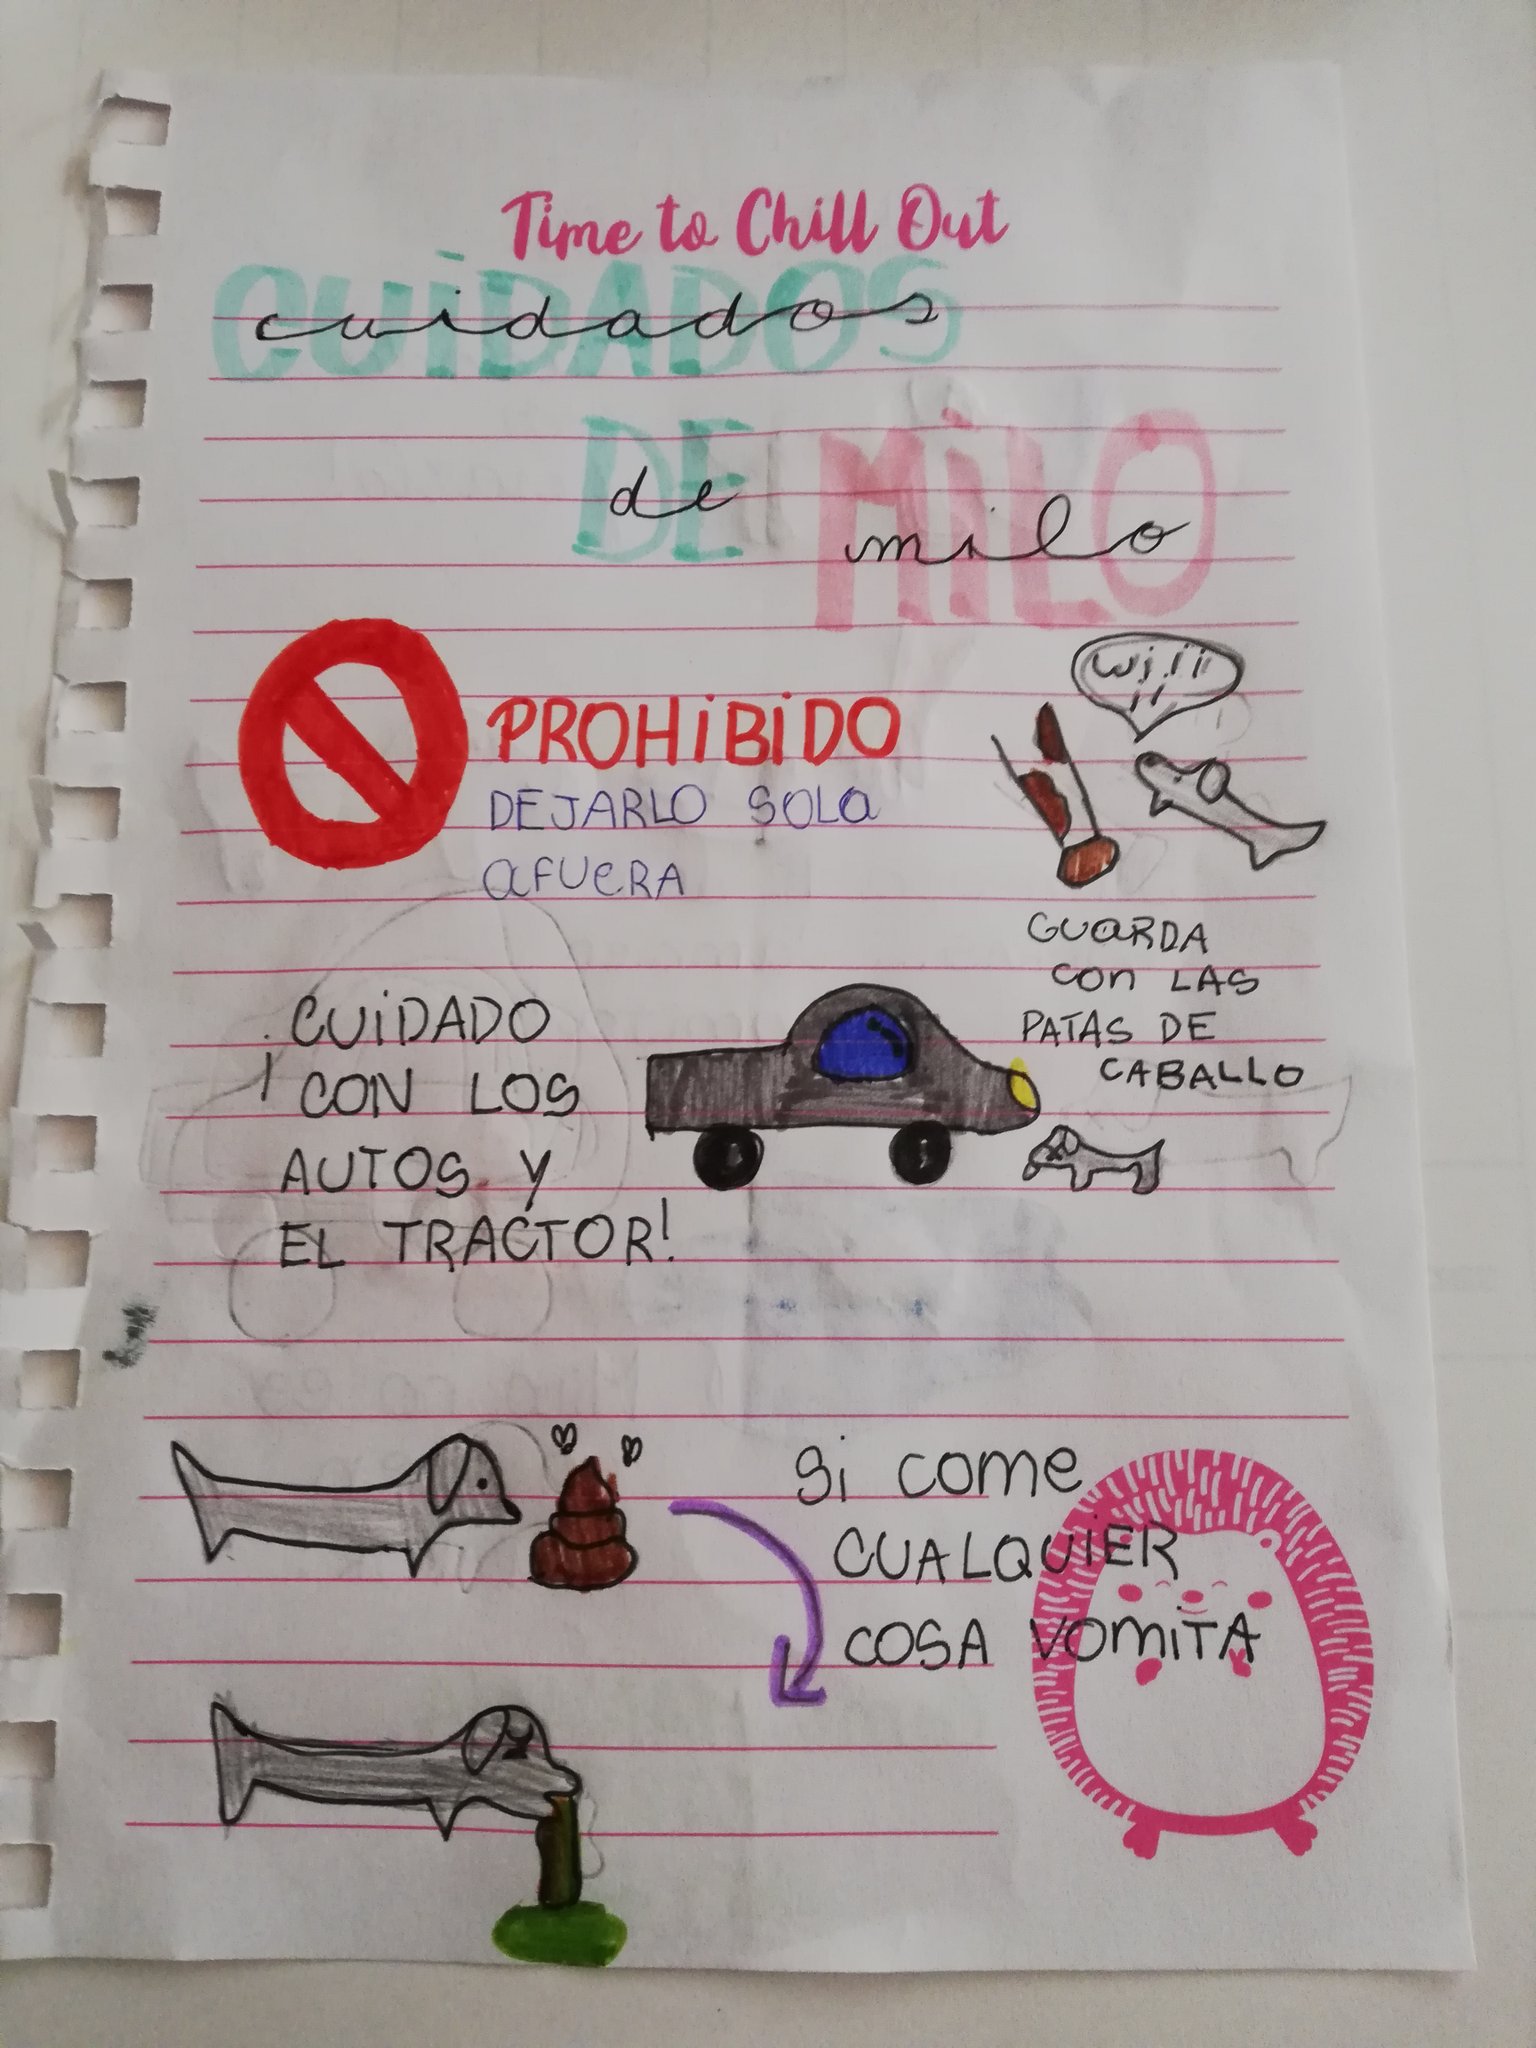 Time to Chill Out
CUiDADOS
cuidados
DE MiLO
de milo
PROHiBiDO
DEJARLO SOLO
AFUERA
GUARDA
con LAS
PATAS DE
CABALLO
¡CUiDADO
CON LOS
AUTOS Y
EL TRACTOR!
Si come
CUALQUiER
COSA VOMiTA